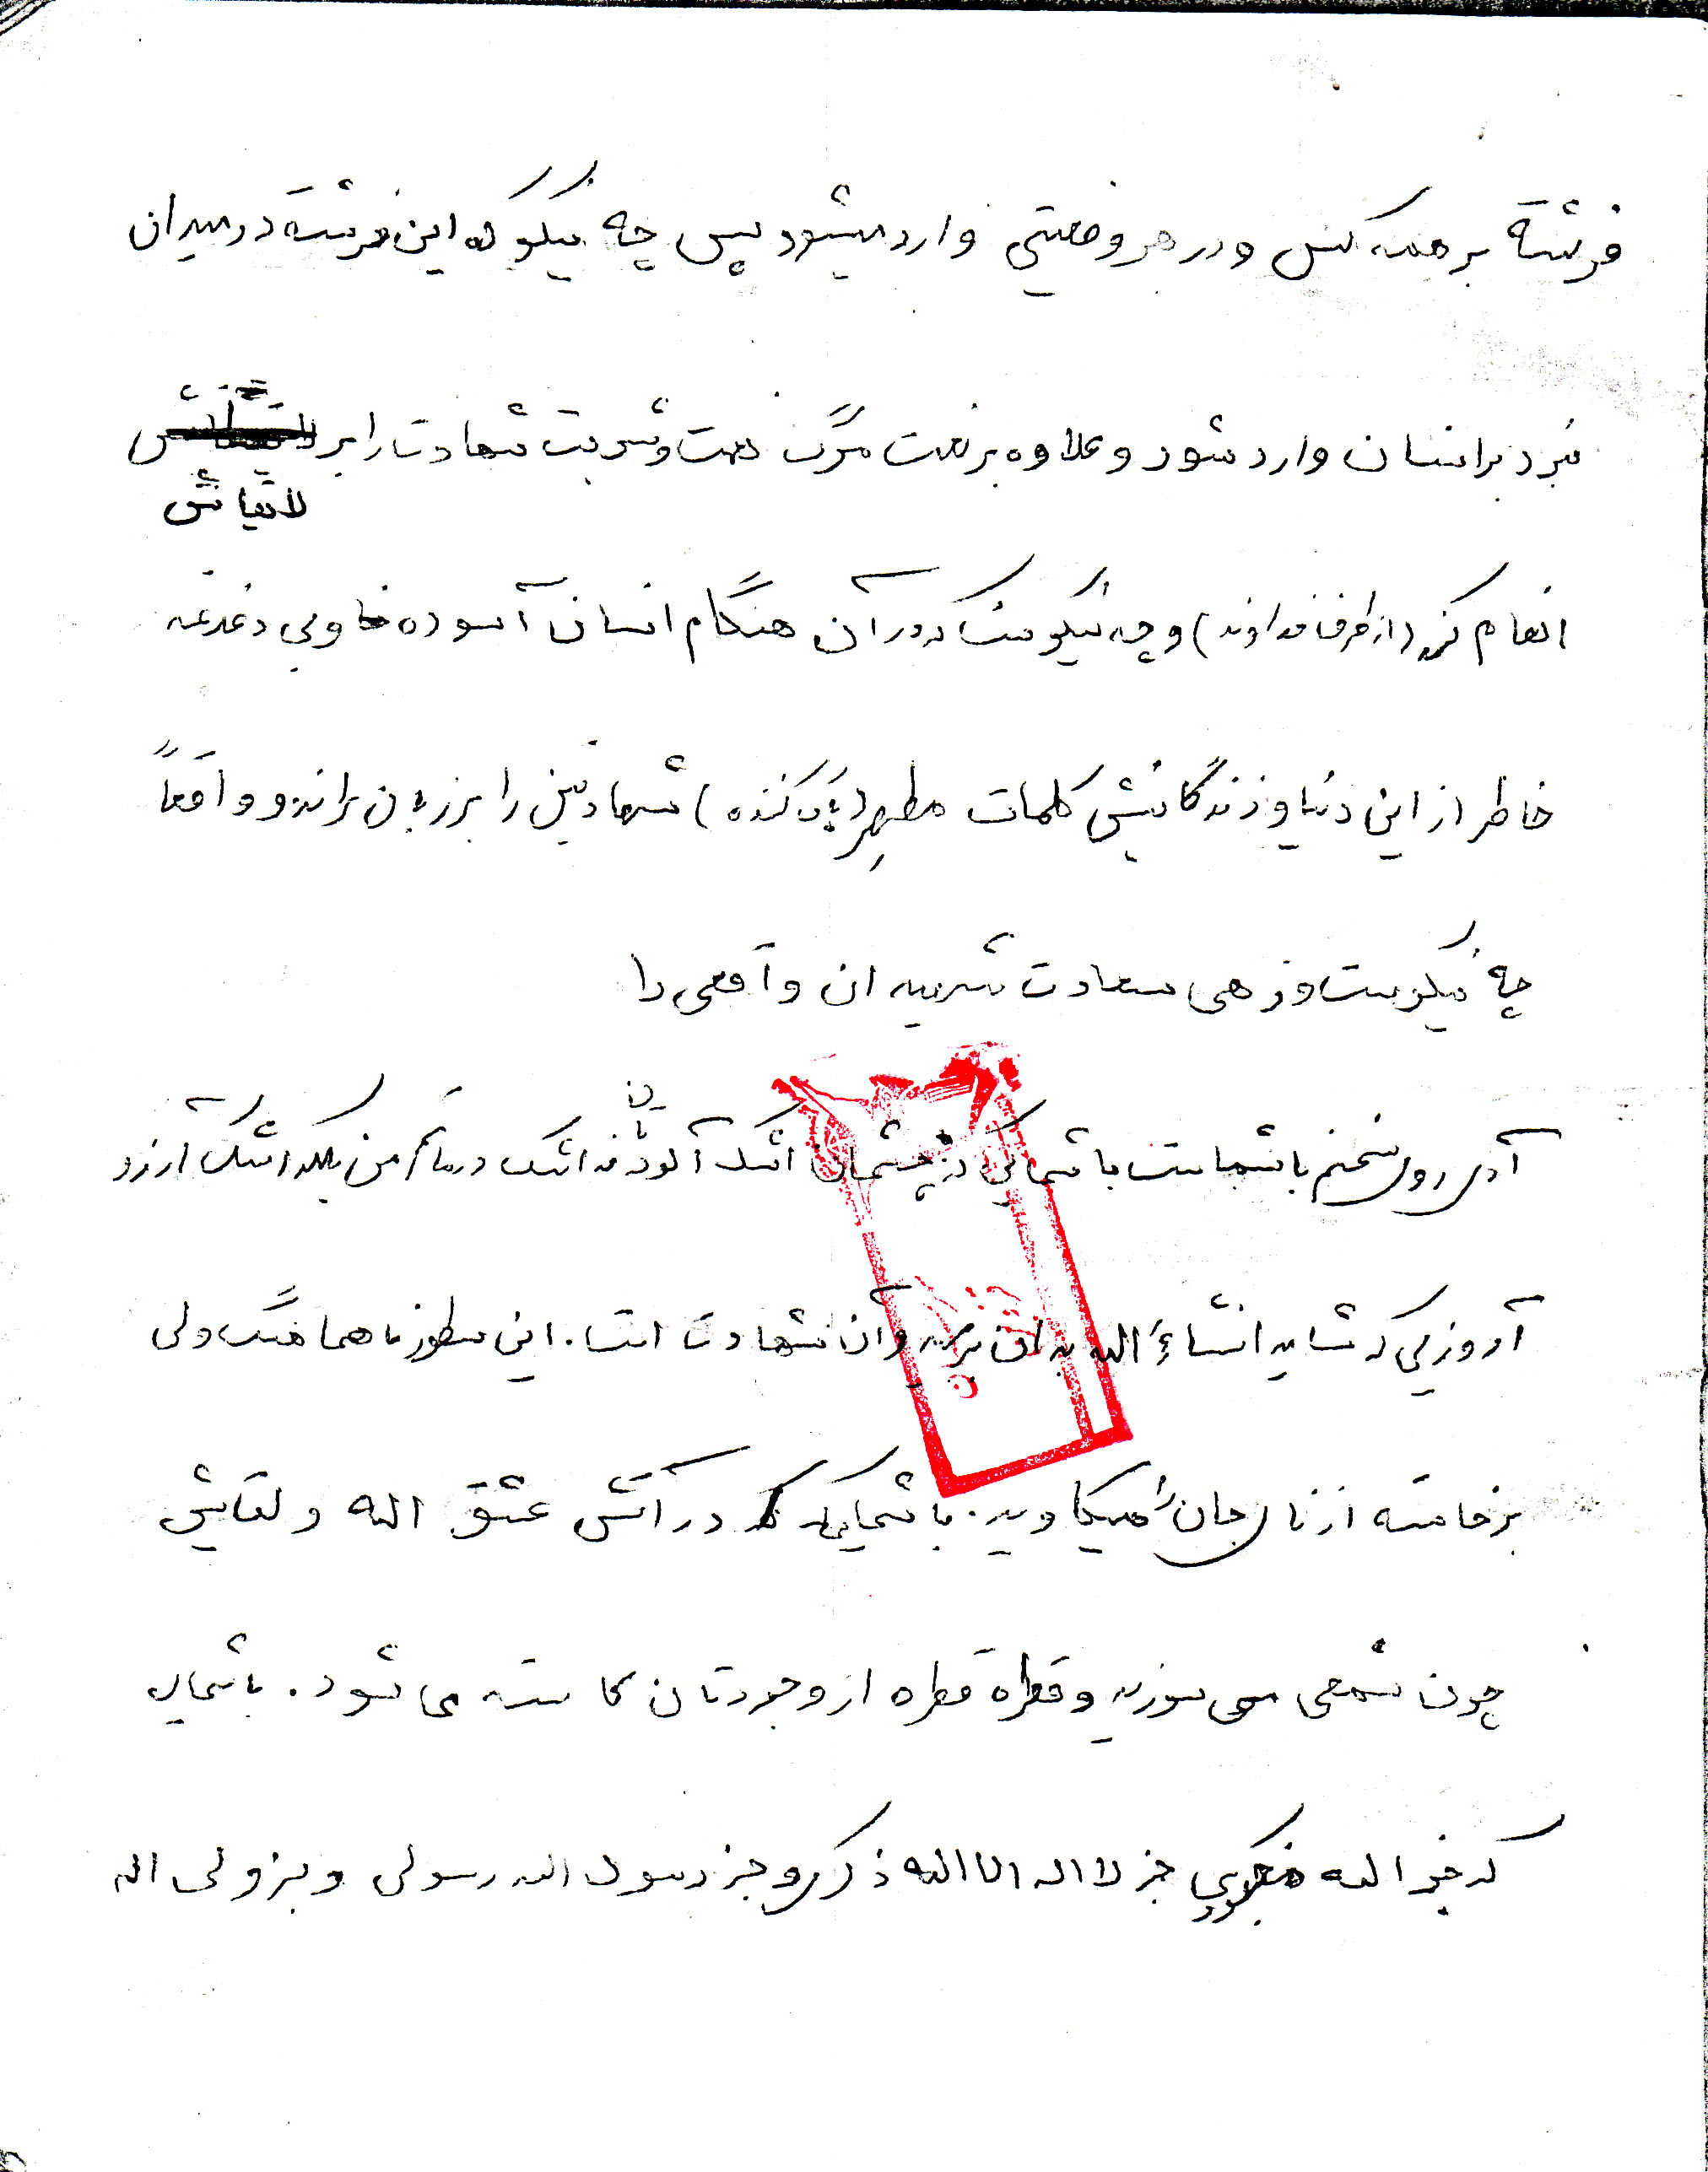 فرشته بر همه کس و در هر وضعیتی وارد میشود پس چه نیکو که این فرشته در میدان
نبرد بر انسان وارد شود و علاوه بر نعمت مرگ نعمت و شربت شهادت را بر
لاتیانش
انعام کند (از طرف خداوند) و چه نیکوست که در آن هنگام انسان آسوده خا وبی دغدغه
خاطر از این دنیا و زندگانیش کلمات مطهر (پاک کننده) شهادتین را بر زبان براند و واقعاً
چه نیکوست و زهی سعادت شهیدان واقعی را
آری روی سخنم با شماست با شمائی که چشمان اشک آلودتان نه اشک در ماتم من بلکه اشک آرزو
آرزویی که شاید انشاءالله به آن برسید و آن شهادت است. این سطور ناهماهنگ ولی
برخاسته از نای جان را میکاوید. با شمایی که در آتش عشق الله و لقایش
چون شمعی می سوزید و قطره قطره از وجودتان کاسته می شود. با شمای
که جز الله فکری جز لا اله الا الله ذکری و جز رسول الله رسولی و بجز ولی اله